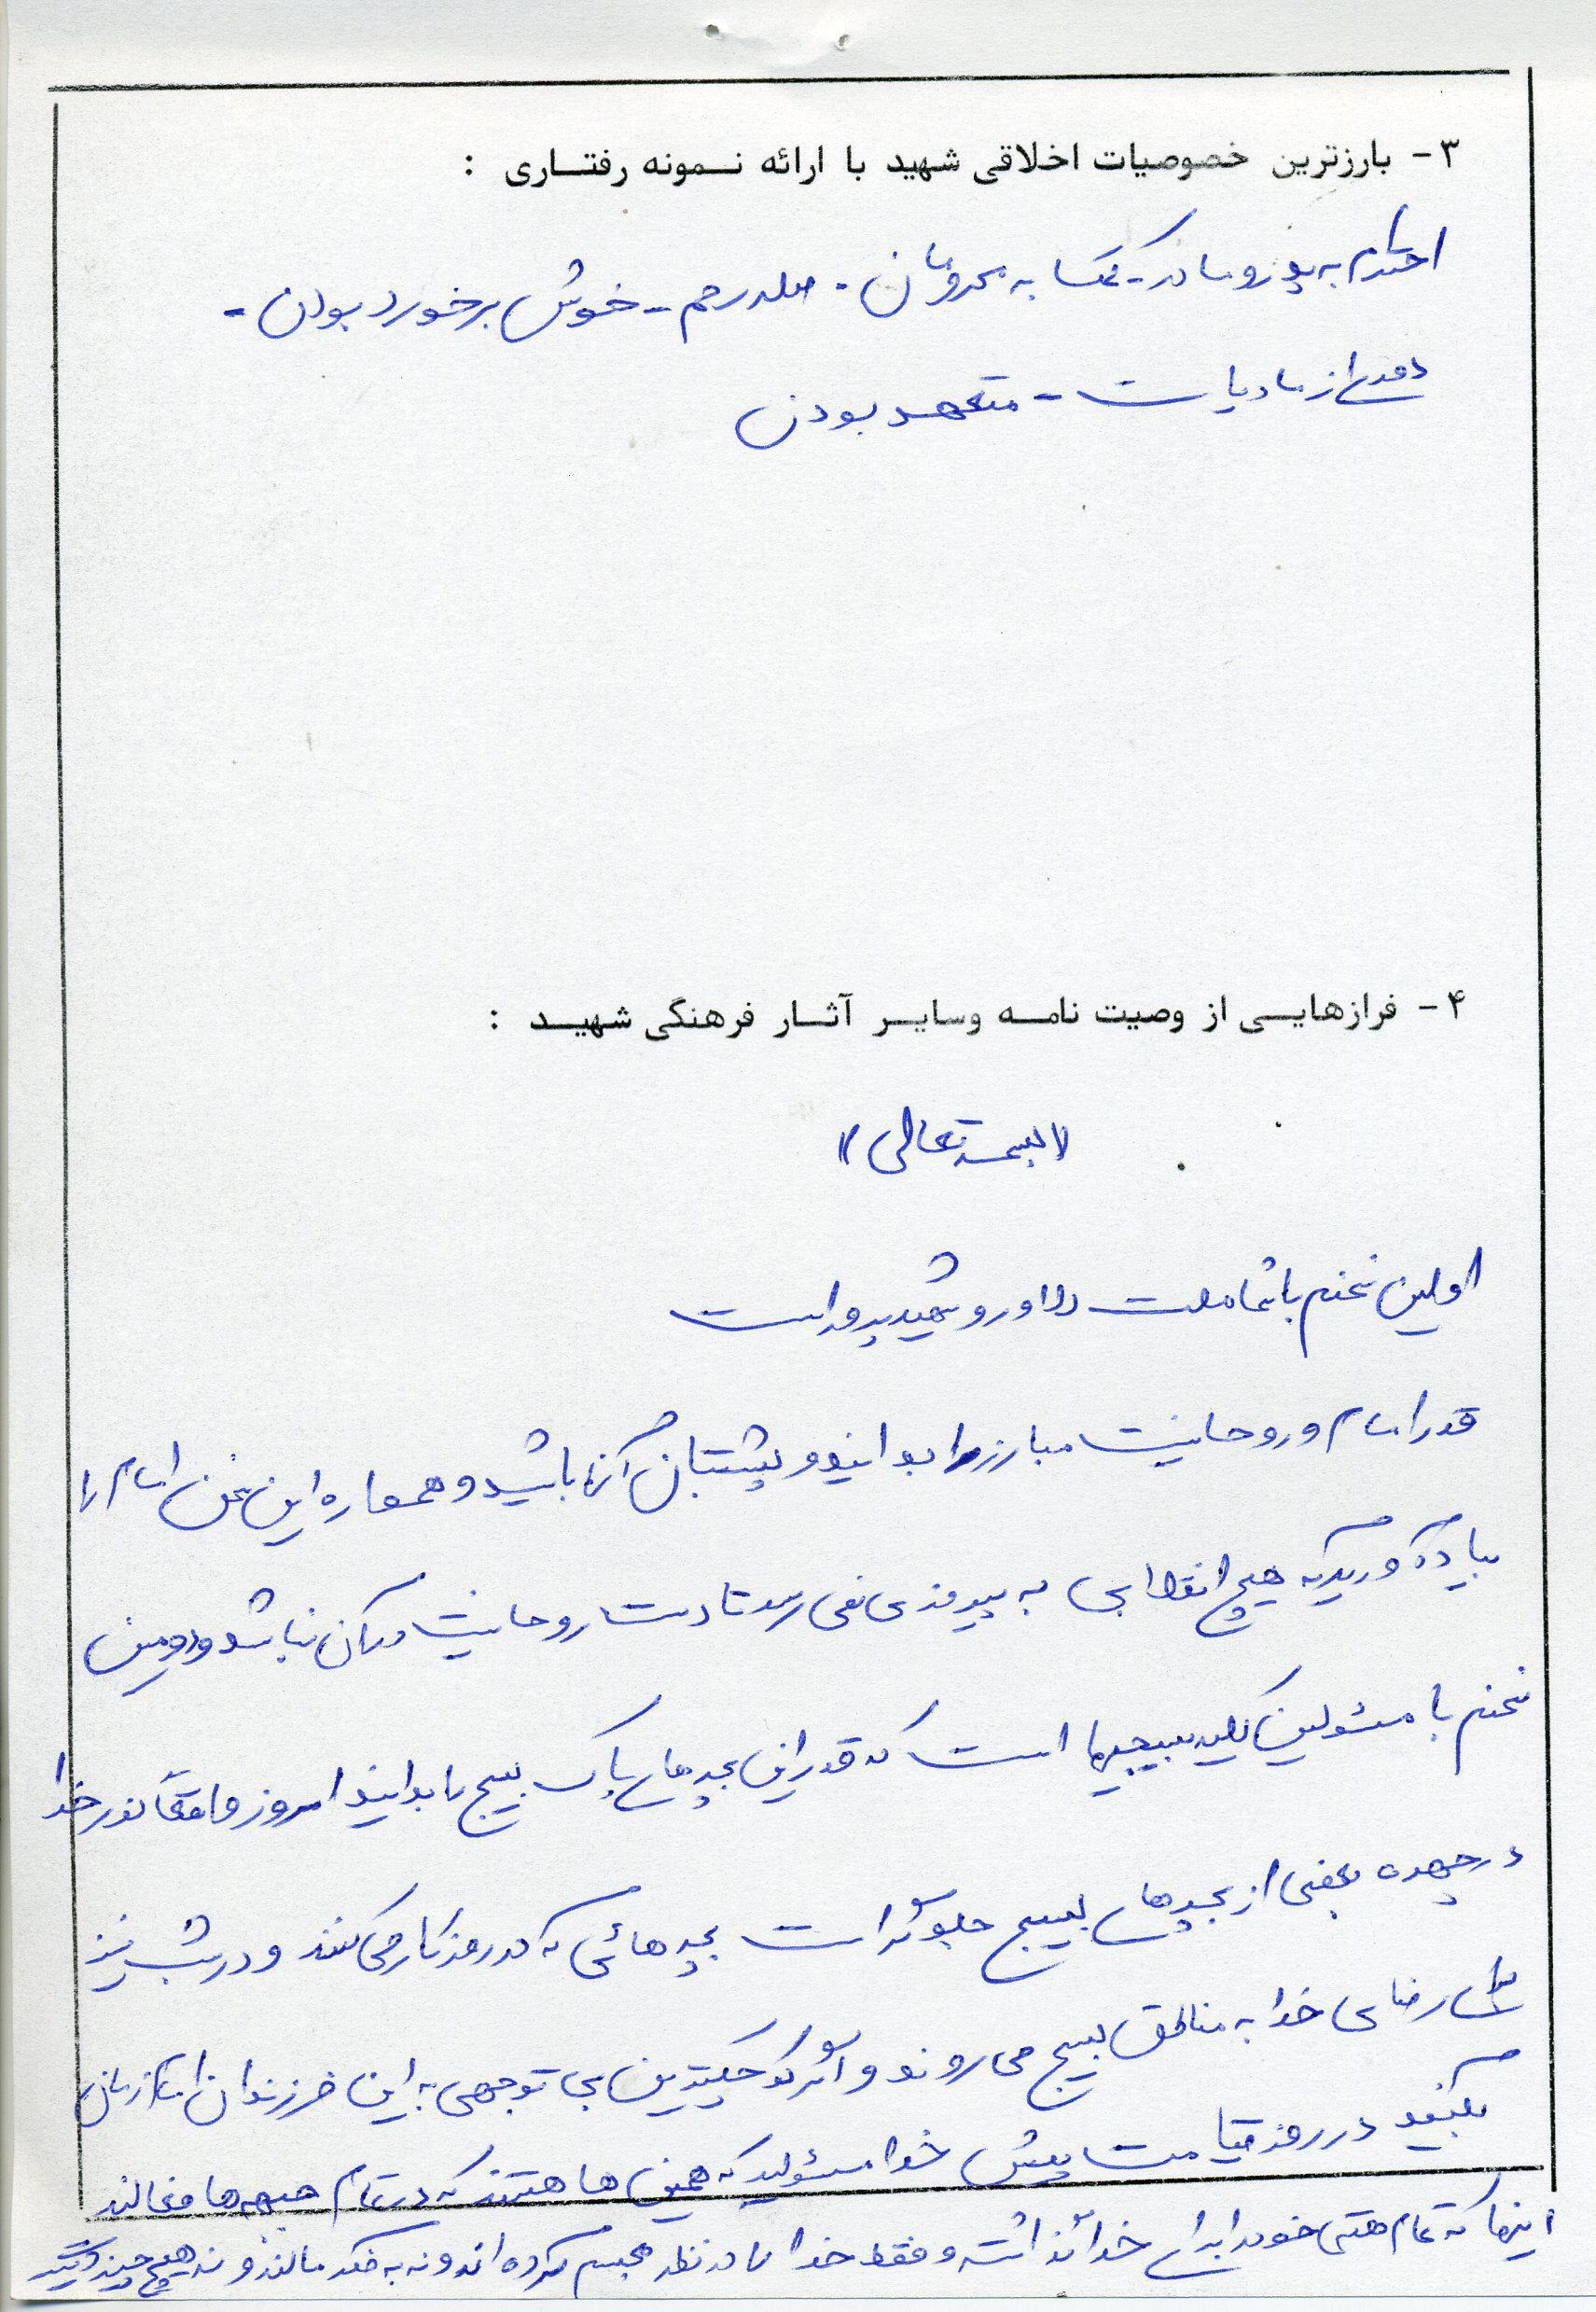 ۳- بارزترین خصوصیات اخلاقی شهید با ارائه نمونه رفتاری :
احترام به پدر و مادر - کمک به محرومان - صله رحم - خوش برخورد بودن -
دوری از مادیات - متعهد بودن
۴- فرازهایی از وصیت نامه وسایر آثار فرهنگی شهید :
«بسمه تعالی»
اولین سخنم با شما ملت دلاور و شهید پرور است
قدر امام و روحانیت مبارز را بدانید و پشتیبان آنها باشید و همواره این سخن امام را
بیاد آورید که هیچ انقلابی به پیروزی نمی رسد تا دست روحانیت در آن نباشد و دومین
سخنم با مسئولین کلیه بسیجیها است که قدر این بچه های پاک بسیج را بدانید امروز واقعاً نور خدا
در چهره بعضی از بچه های بسیج جلوه گر است بچه هائی که در روز کار می کنند و در شب نیز
برای رضای خدا به مناطق بسیج می روند و اگر کوچکترین بی توجهی به این فرزندان امام زمان
بکنید در روز قیامت پیش خدا مسئولید که همین ها هستند که در تمام جبهه ها فعالند
اینها که تمام هستی خود را برای خدا گذاشته و فقط خدا را در نظر مجسم کرده اند و نه به فکر مالند و نه هیچ چیز دیگر